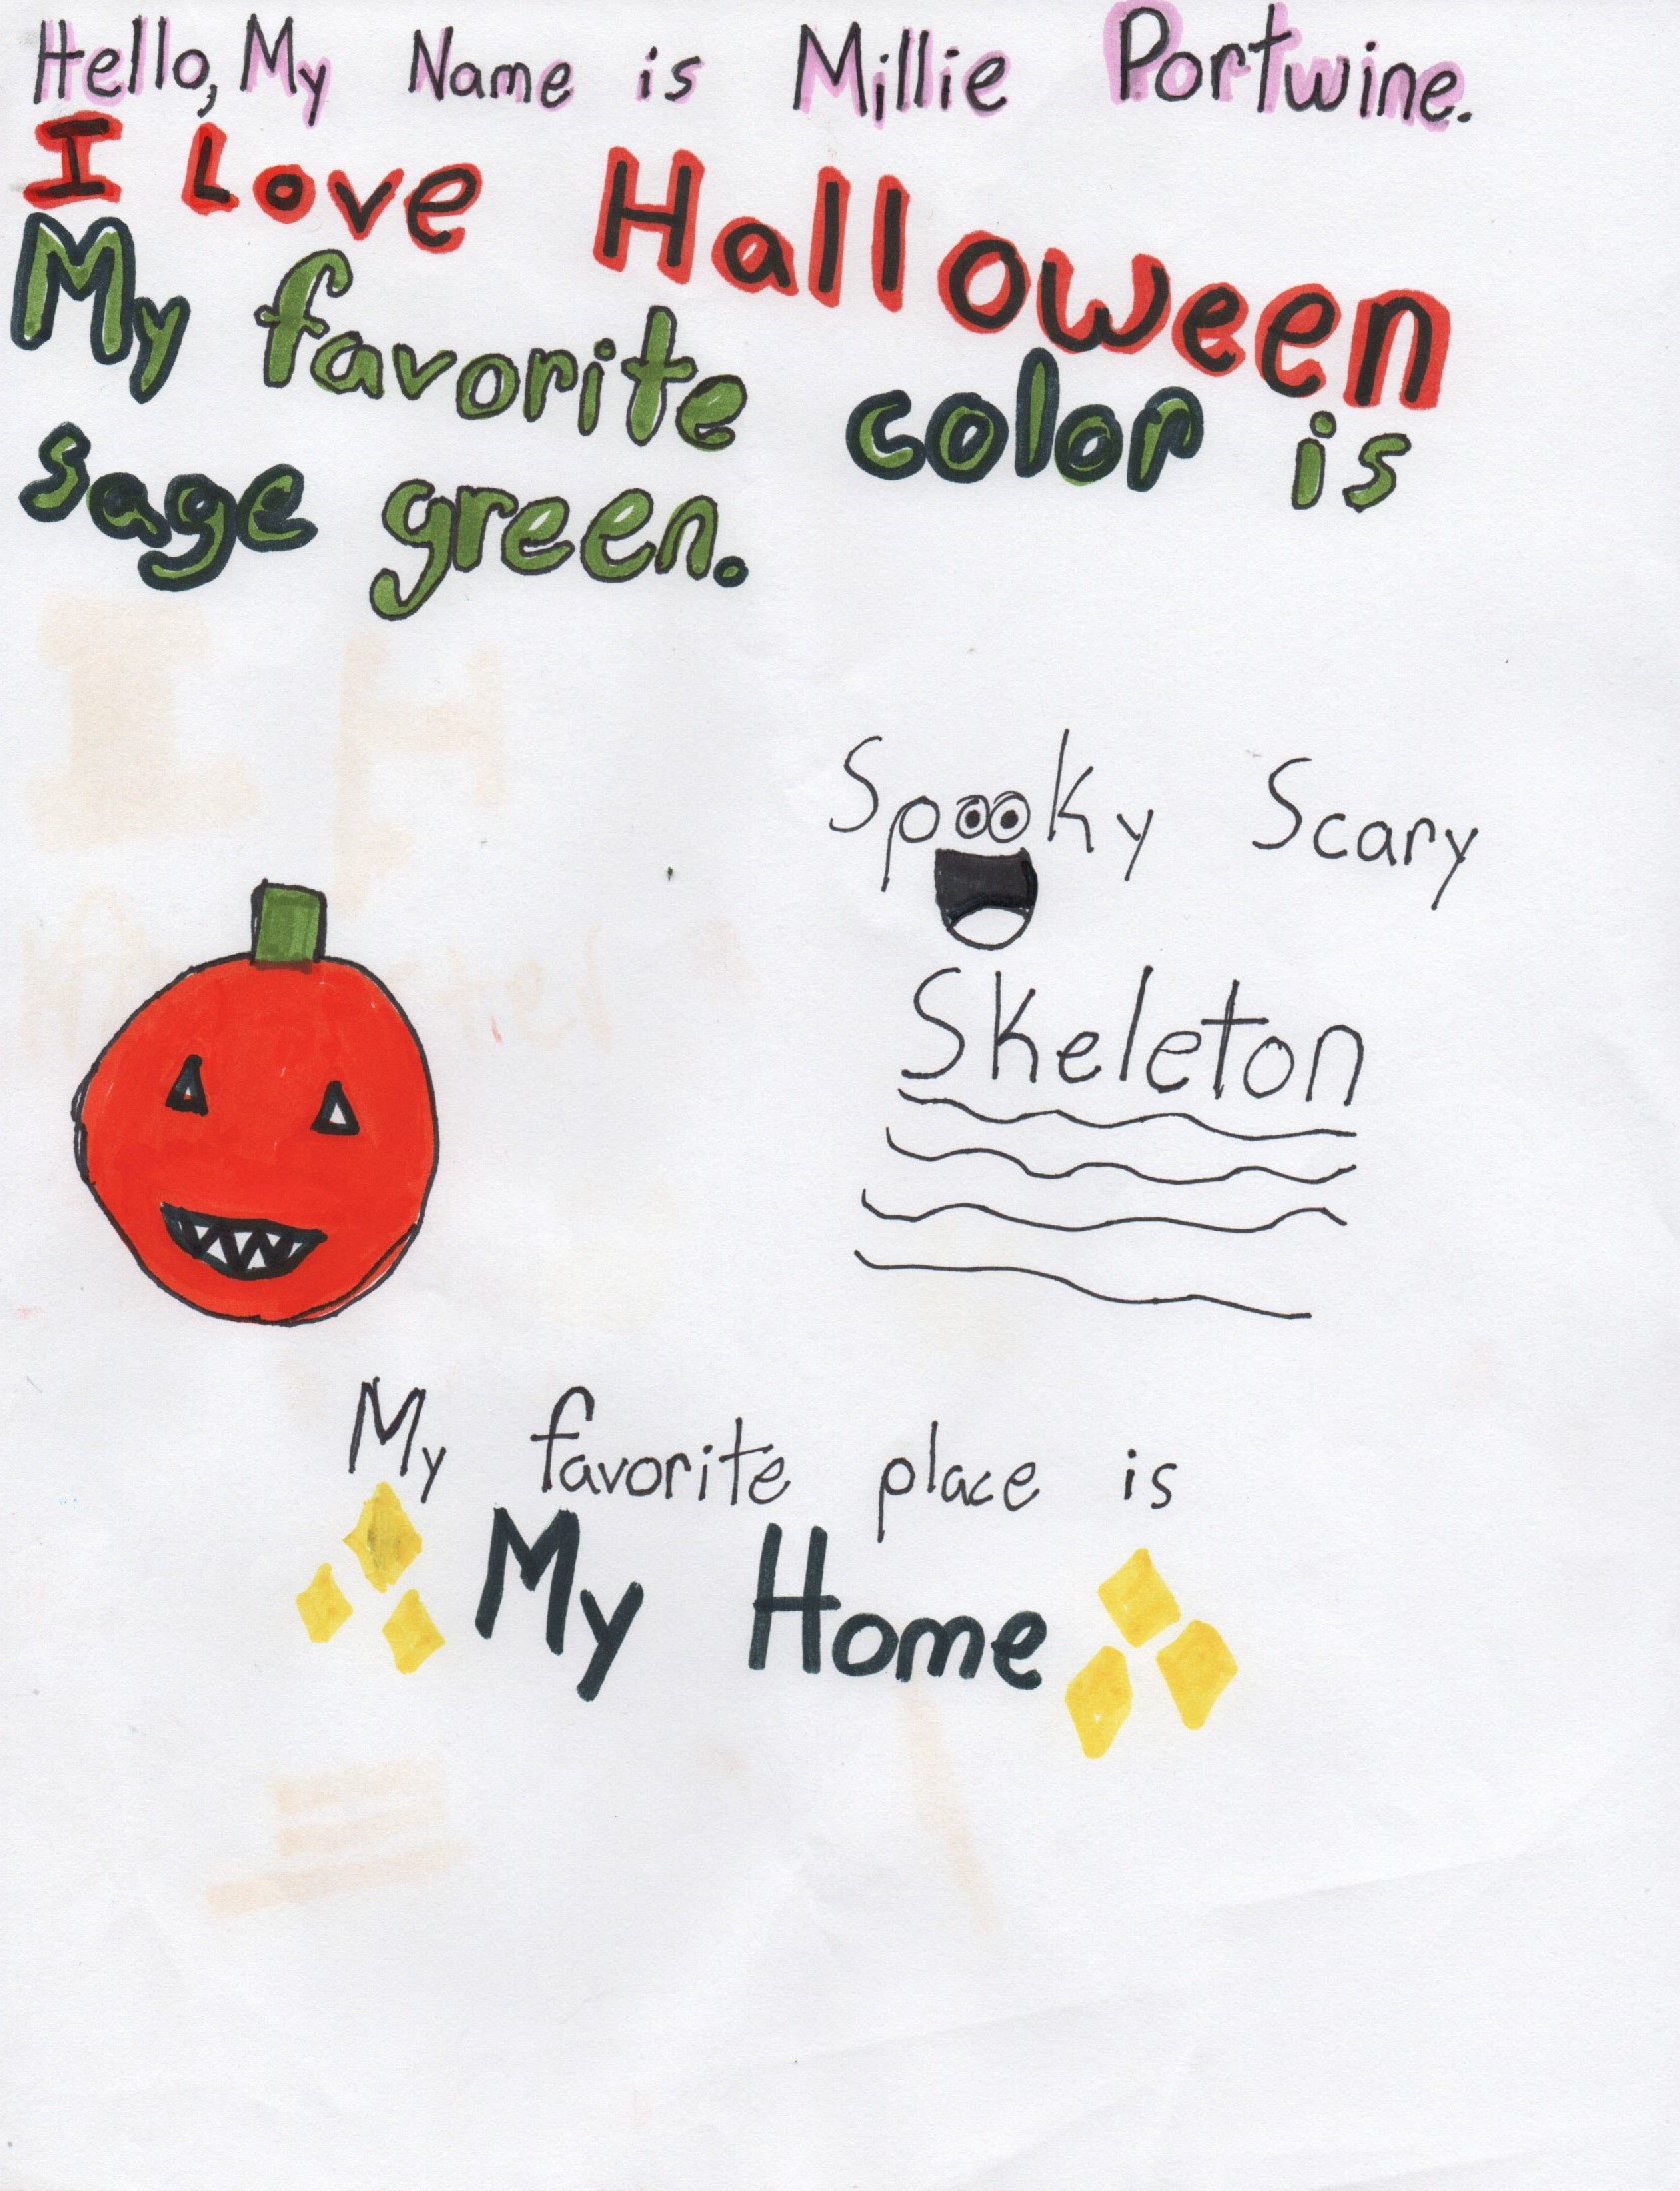 Hello, My Name is Millie Portwine.
I Love Halloween
My favorite color is
sage green.
Spooky Scary
Skeleton
My favorite place is
My Home